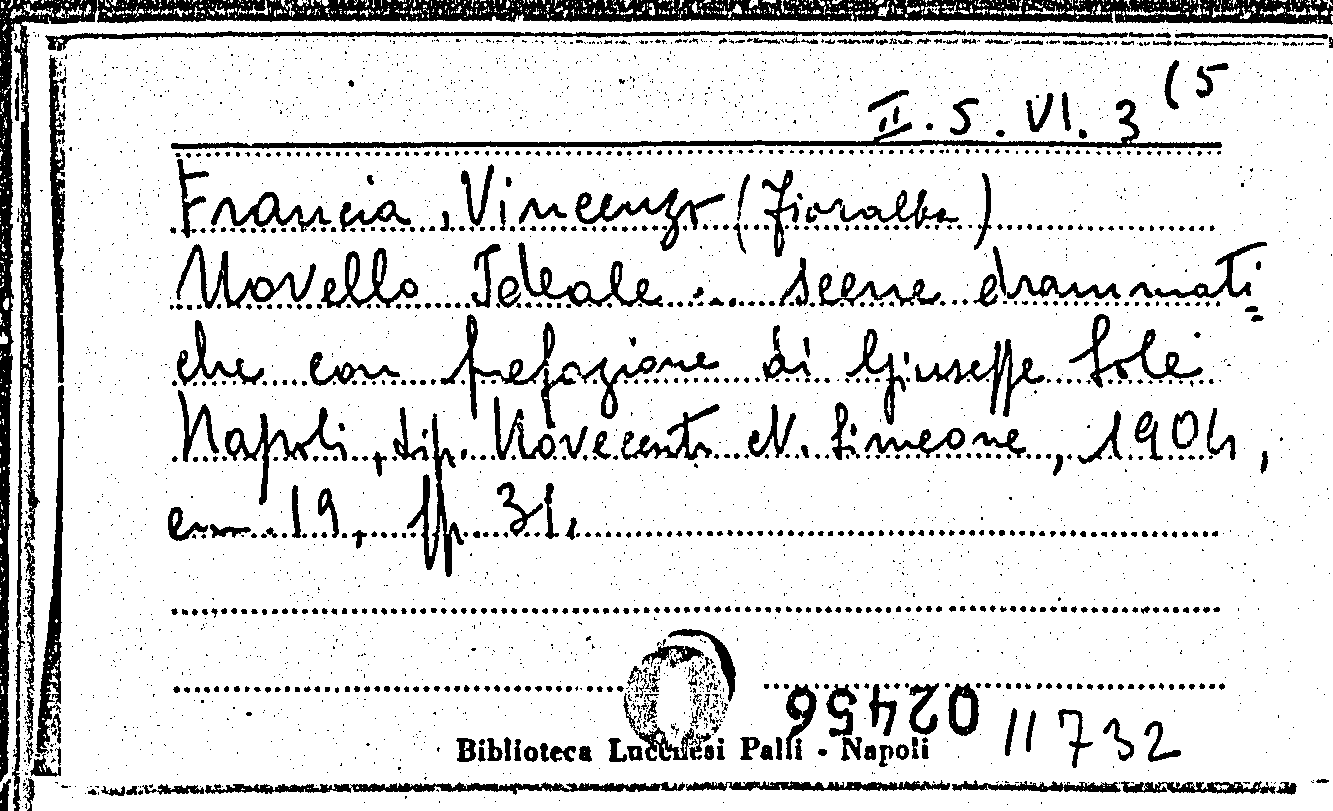 II. 5. VI. 3 (5
Francia, Vincenzo (Fioralba)
Novello Ideale ... scene drammati=
che con prefazione di Giuseppe Sole
Napoli, tip. Novecento N. Simeone, 1904,
cm. 19, pp. 31.
02456
11732
Biblioteca Lucchesi Palli - Napoli